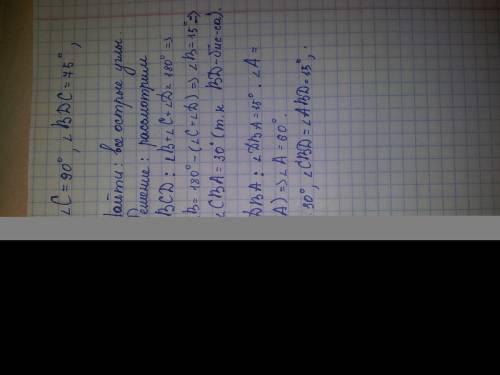 ∠C = 90°, ∠BDC = 75°,
Найти: все острые углы
Решение: рассмотрим
BCD: ∠B + ∠C + ∠D = 180° =>
B = 180° - (∠C + ∠D) => ∠B = 15° =>
∠CBA = 30° (т.к. BD - бис-са).
DBA: ∠DBA = 15°. ∠A =
A) => ∠A = 60°.
30°, ∠CBD = ∠ABD = 15°,